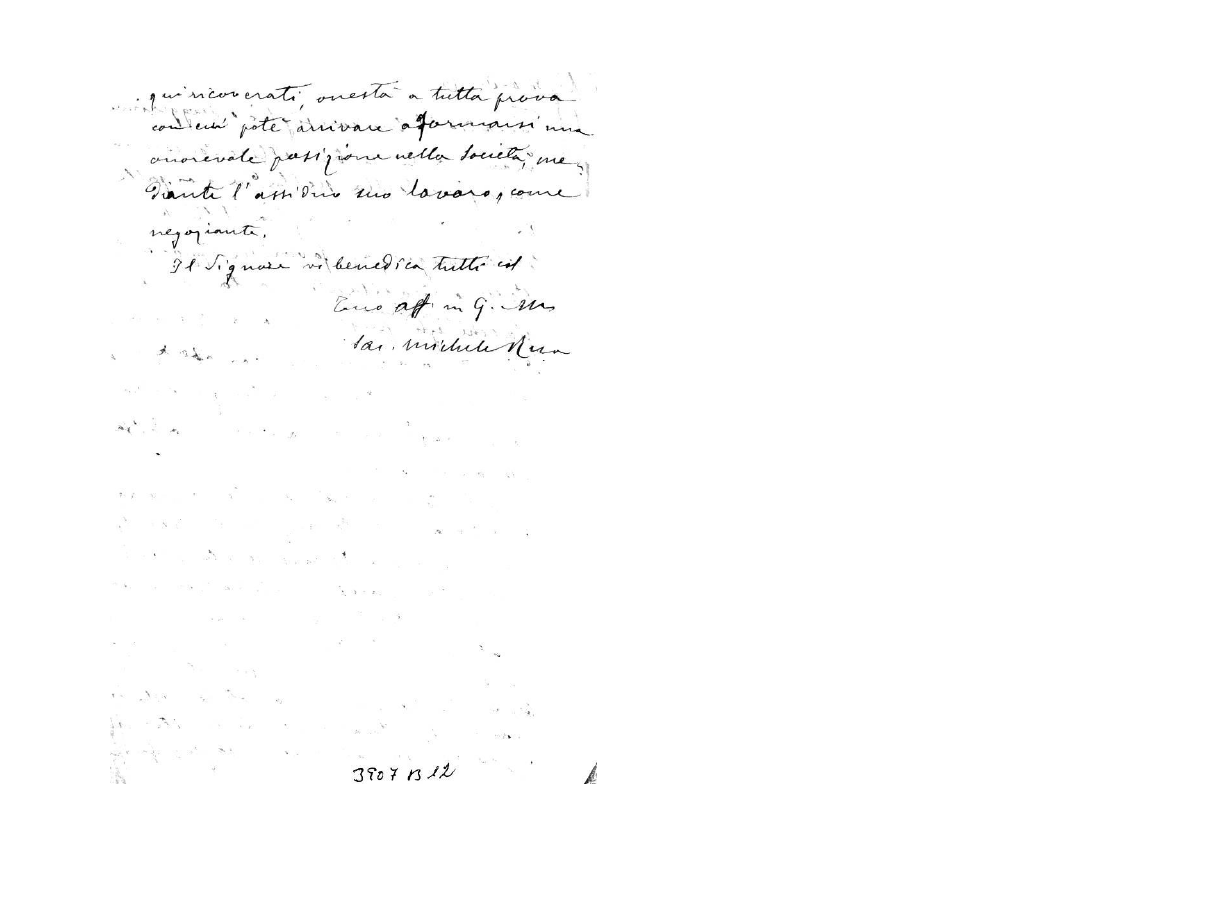 qui ricoverati, onestà a tutta prova
con cui potè arrivare a formarsi una
onorevole posizione nella Società, me-
diante l'assiduo suo lavoro, come
negoziante.
Il Signore vi benedica tutti col
Tuo aff in G. M.
Sac. Michele Rua
3907 B 12